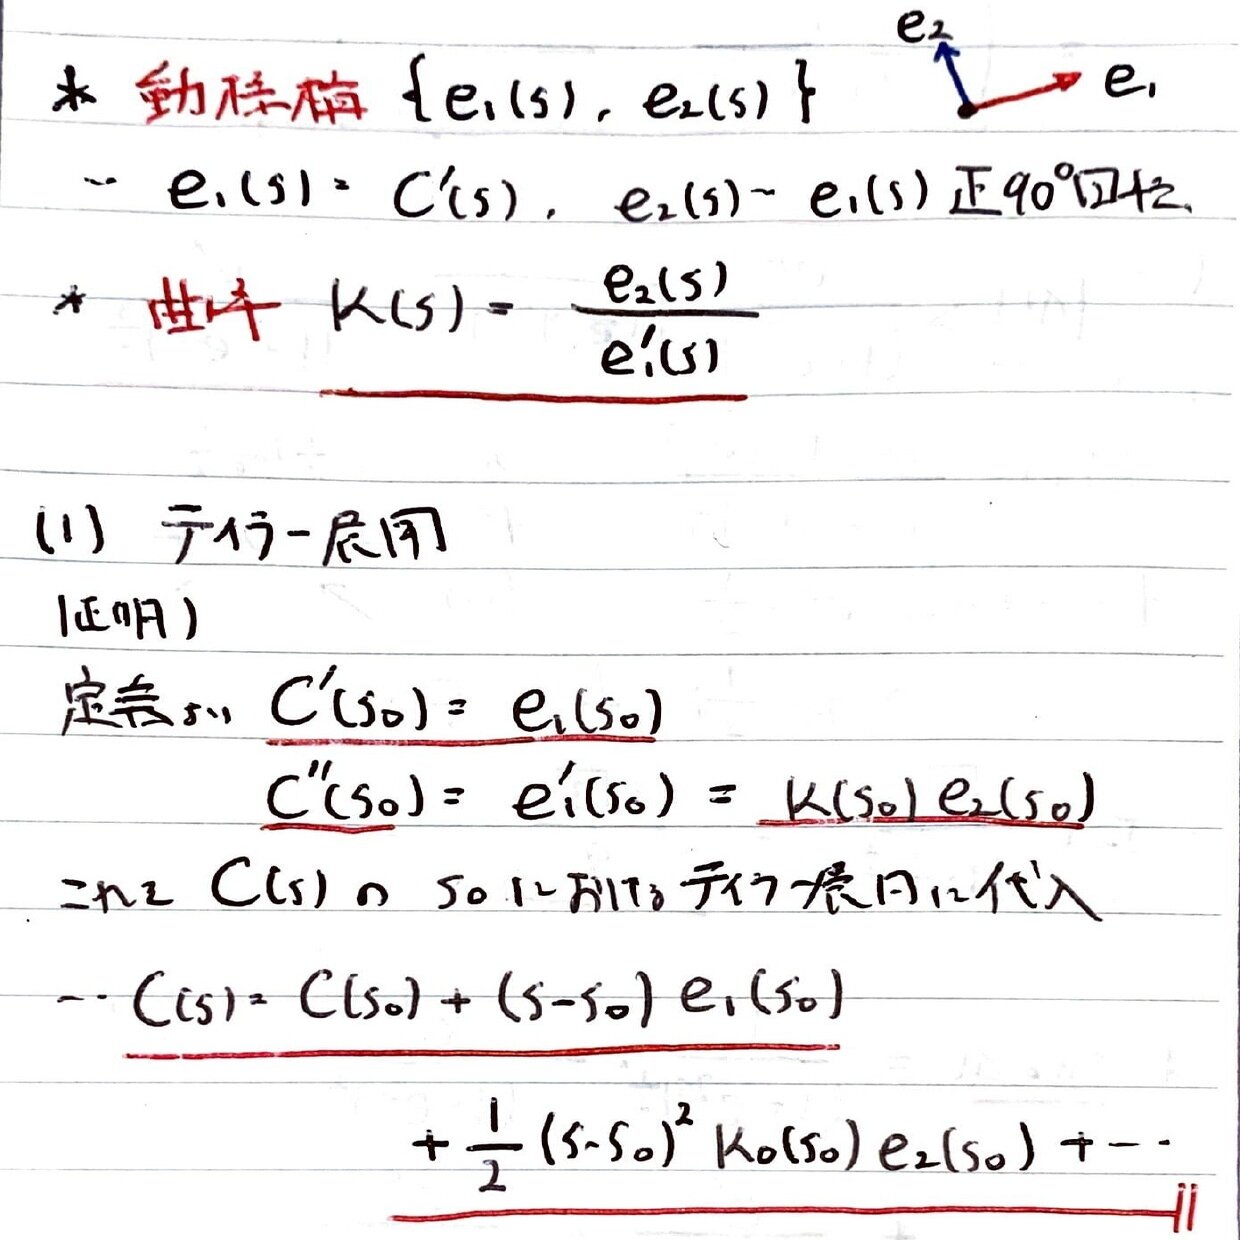 e₂
* 動標構 {e₁(s), e₂(s)} e₁
… e₁(s) = C'(s), e₂(s) ~ e₁(s) 正90°回転
* 曲率 κ(s) = e₂(s) / e₁'(s)
(1) テイラー展開
(証明)
定義より C'(s₀) = e₁(s₀)
C''(s₀) = e₁'(s₀) = κ(s₀) e₂(s₀)
これを C(s) の s₀ における テイラー展開に代入
… C(s) = C(s₀) + (s-s₀) e₁(s₀)
+ 1/2 (s-s₀)² κ₀(s₀) e₂(s₀) + …